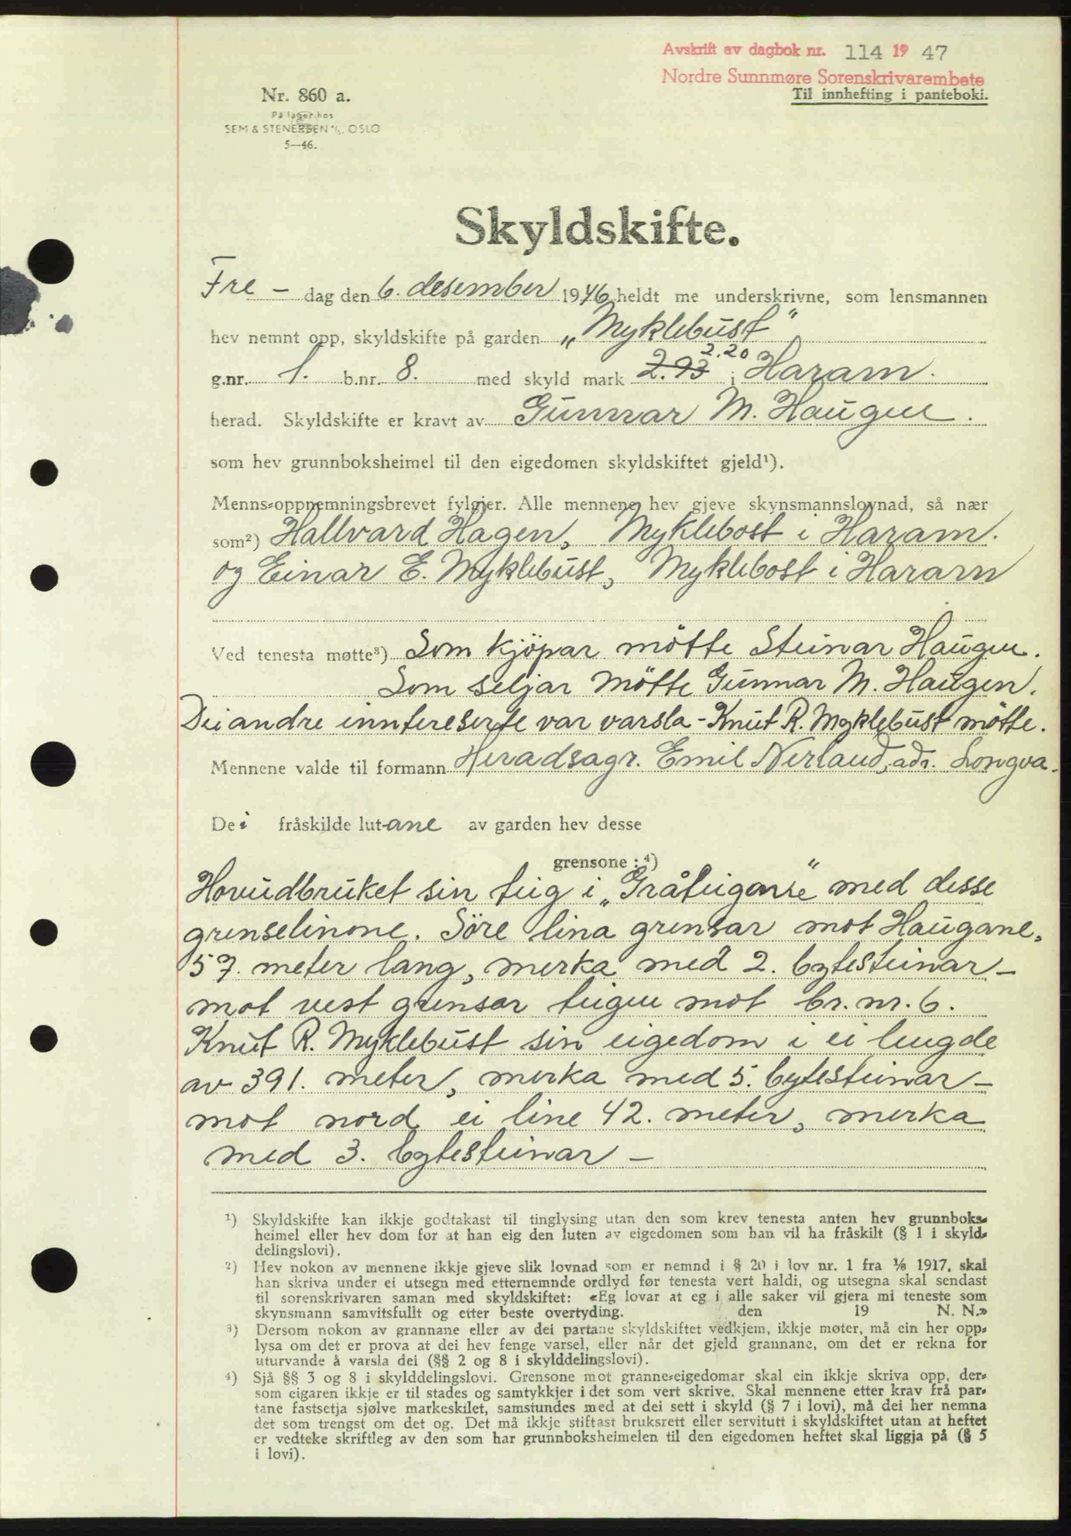 Avskrift av dagbok nr. 114 19 47
Nordre Sunnmøre Sorenskrivarembete
Til innhefting i panteboki.
Nr. 860 a.
På lager hos
SEM & STENERSEN A/S. OSLO
5—46.
Skyldskifte.
Fre - dag den 6. desember 1946 heldt me underskrivne, som lensmannen
hev nemnt opp, skyldskifte på garden „Myklebust”
2.20
g.nr. 1. b.nr. 8. med skyld mark 2.93 i Haram.
herad. Skyldskifte er kravt av Gunnar M. Haugen.
som hev grunnboksheimel til den eigedomen skyldskiftet gjeld¹).
Menns-oppnemningsbrevet fylgjer. Alle mennene hev gjeve skynsmannslovnad, så nær
som²) Hallvard Hagen, Myklebost i Haram.
og Einar E. Myklebust, Myklebost i Haram
Ved tenesta møtte³) Som kjöpar mötte Steinar Haugen.
Som seljar mötte Gunnar M. Haugen.
Dei andre inntereserte var varsla - Knut R. Myklebust mötte.
Mennene valde til formann Heradsagr. Emil Nerland, adr. Longva.
Dei fråskilde lut-ane av garden hev desse
grensone: ⁴)
Hovudbruket sin teig i „Gråteigane” med desse
grenselinone. Söre lina grensar mot Haugane,
57. meter lang, merka med 2. bytesteinar -
mot vest grensar teigen mot br. nr. 6.
Knut R. Myklebust sin eigedom i ei lengde
av 391. meter, merka med 5. bytesteinar -
mot nord ei line 42. meter, merka
med 3. bytesteinar -
¹) Skyldskifte kan ikkje godtakast til tinglysing utan den som krev tenesta anten hev grunnboks-
heimel eller hev dom for at han eig den luten av eigedomen som han vil ha fråskilt (§ 1 i skyld-
delingslovi).
²) Hev nokon av mennene ikkje gjeve slik lovnad som er nemnd i § 20 i lov nr. 1 fra 1/6 1917, skal
han skriva under ei utsegn med etternemnde ordlyd før tenesta vert haldi, og utsegna skal sendast
til sorenskrivaren saman med skyldskiftet: «Eg lovar at eg i alle saker vil gjera mi teneste som
skynsmann samvitsfullt og etter beste overtyding. den 19 N. N.»
³) Dersom nokon av grannane eller av dei partane skyldskiftet vedkjem, ikkje møter, må ein her opp-
lysa om det er prova at dei hev fenge varsel, eller når det gjeld grannane, om det er rekna for
uturvande å varsla dei (§§ 2 og 8 i skylddelingslovi).
⁴) Sjå §§ 3 og 8 i skylddelingslovi. Grensone mot granne-eigedomar skal ein ikkje skriva opp, der-
som eigaren ikkje er til stades og samtykkjer i det som vert skrive. Skal mennene etter krav frå par-
tane fastsetja sjølve markeskilet, samstundes med at dei sett i skyld (§ 7 i lovi), må dei her nemna
det som trengst om det og. Det må ikkje stiftast bruksrett eller servitutt i skyldskiftet utan at heftet
er vedteke skriftleg av den som har grunnboksheimelen til den eigedomen heftet skal liggja på (§ 5
i lovi).